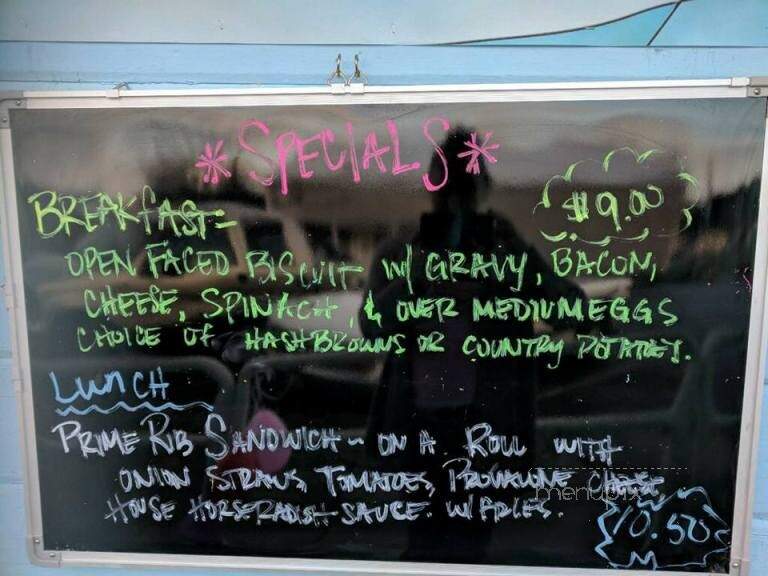 *SPECIALS*
BREAKFAST- $9.00
OPEN FACED BISCUIT W/ GRAVY, BACON,
CHEESE, SPINACH, & OVER MEDIUM EGGS
CHOICE OF HASHBROWNS OR COUNTRY POTATOES.
LUNCH
PRIME RIB SANDWICH ~ ON A ROLL WITH
ONION STRAWS, TOMATOES, PROVALONE CHEESE,
HOUSE HORSERADISH SAUCE. W/ FRIES.
10.50
menupix